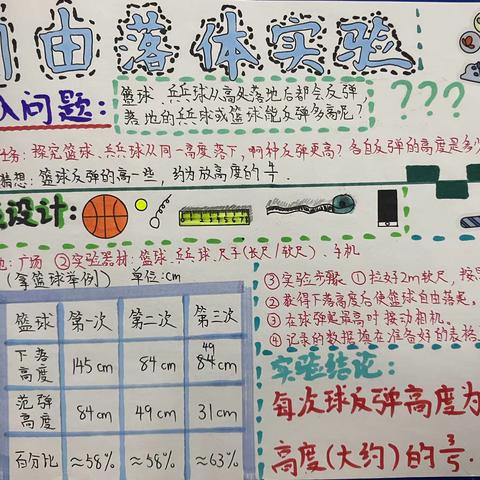 由落体实验
入问题:
篮球、乒乓球从高处落地后都会反弹
落地的乒球或篮球能反弹多高呢?
???
任务: 探究篮球、乒乓球从同一高度落下,哪种反弹更高? 各自反弹的高度是多少
猜想: 篮球反弹的高一些,约为放高度的
设计:
地: 广场 ②实验器材: 篮球、乒乓球、尺子(长尺/软尺)、手机
(拿篮球举例) 单位:cm
篮球 第一次 第二次 第三次
下落高度 145cm 84cm 49 84cm
范弹高度 84cm 49cm 31cm
百分比 ≈58% ≈58% ≈63%
③实验步骤 ①拉好2m软尺,按
②获得下落高度后使篮球自由落
③在球弹起最高时按动相机。
④记录的数据填在准备好的表格
实验结论:
每次球反弹高度为
高度(大约)的3/5.